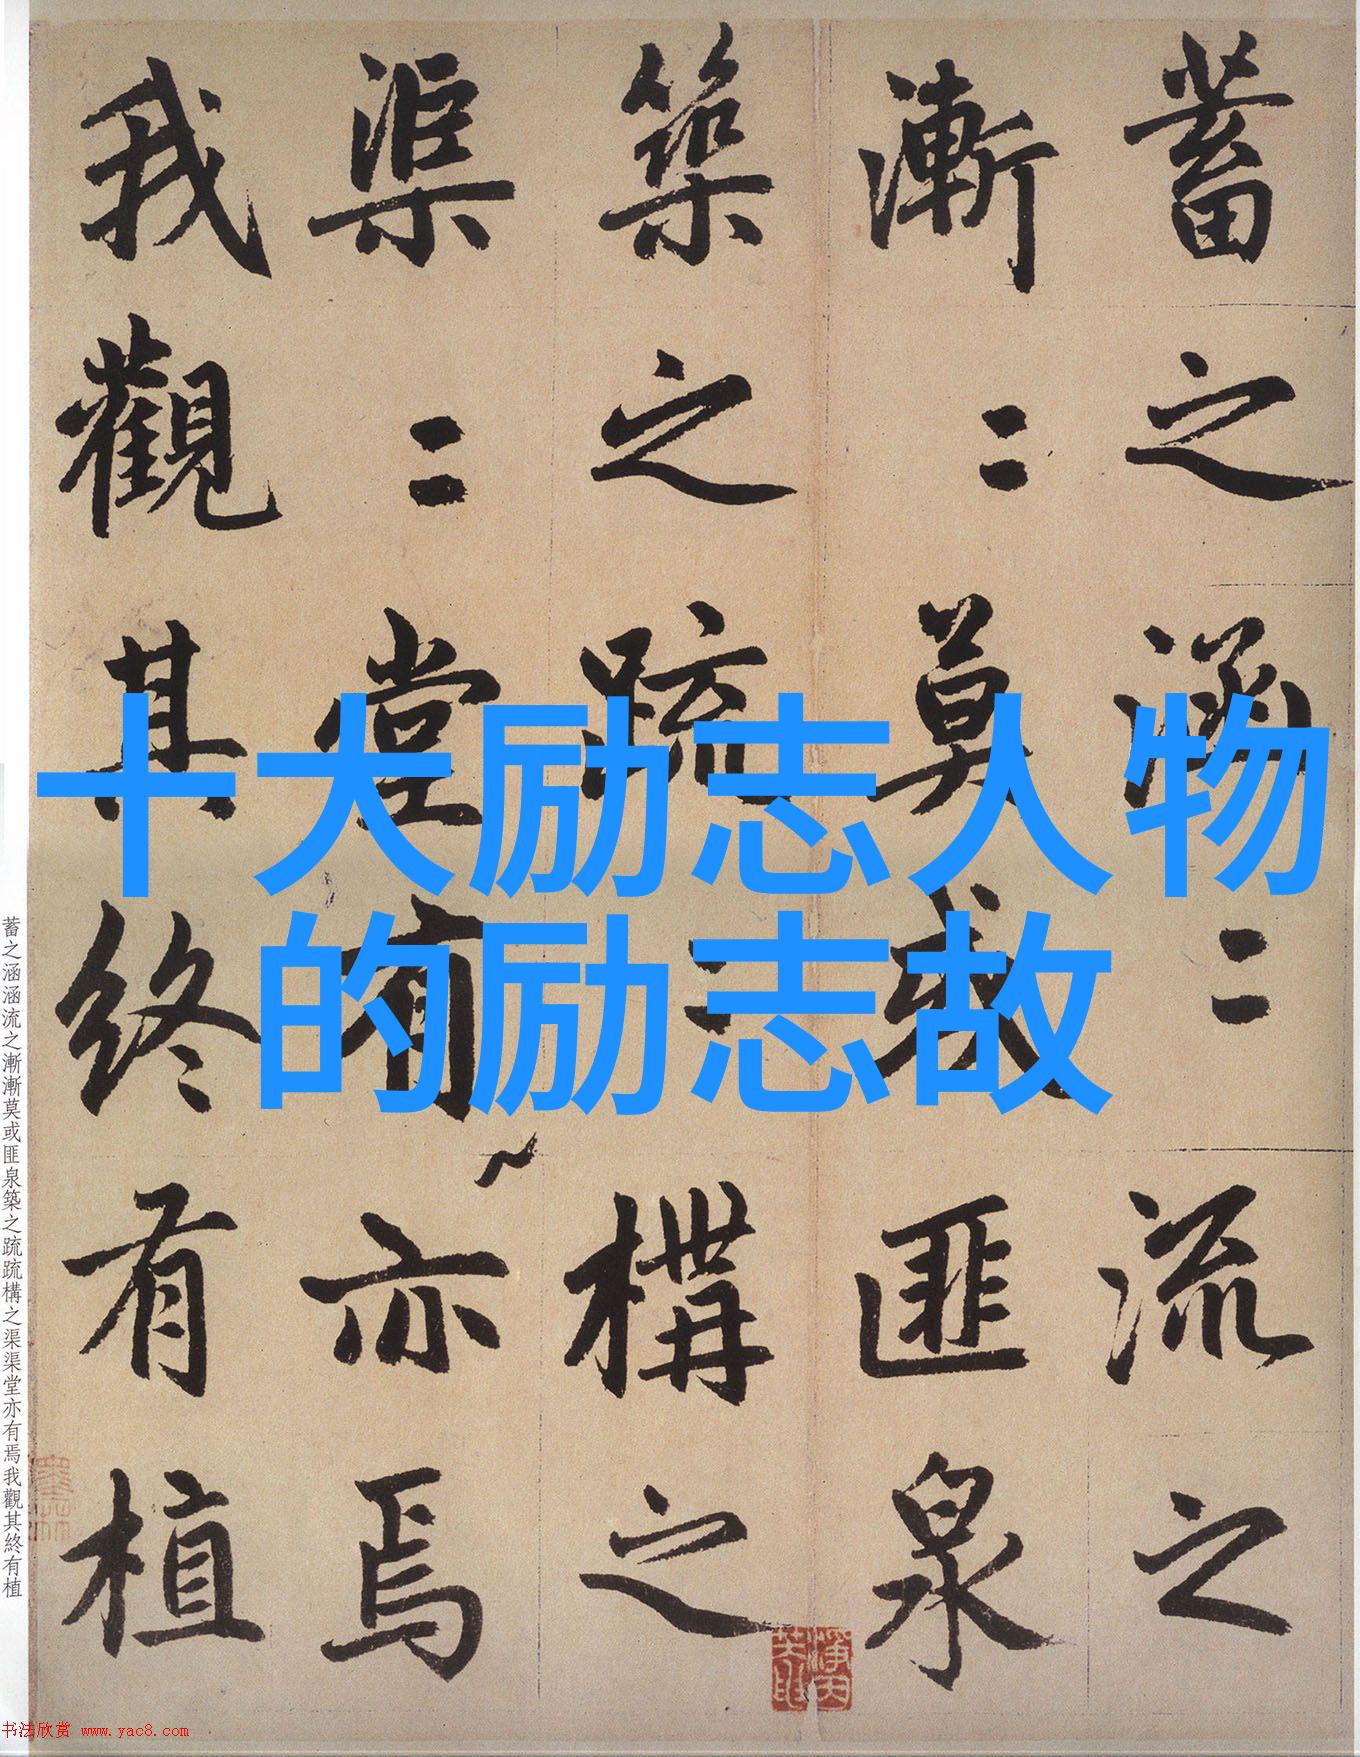 十大励志人物
的励志故
蓄之涵〻流之
漸〻莫或匪泉
築之疏〻構之
渠〻堂有亦焉
我觀其終有植
蓄之涵涵流之漸漸莫或匪泉築之疏疏構之渠渠堂亦有焉我觀其終有植
书法欣赏 www.yac8.com